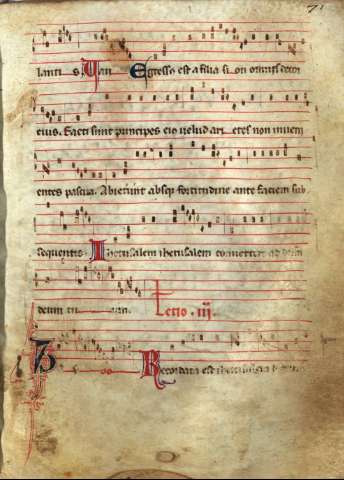 71
lanti s. Uau Egressus est a filia sion omnis decor
eius. Facti sunt principes eius velud arietes non inveni
entes pascua. Abierunt absque fortitudine ante faciem sub
sequentis. Iherusalem iherusalem convertere ad dominum
deum tuum. Lectio .iii.
Recordata est iherusalem